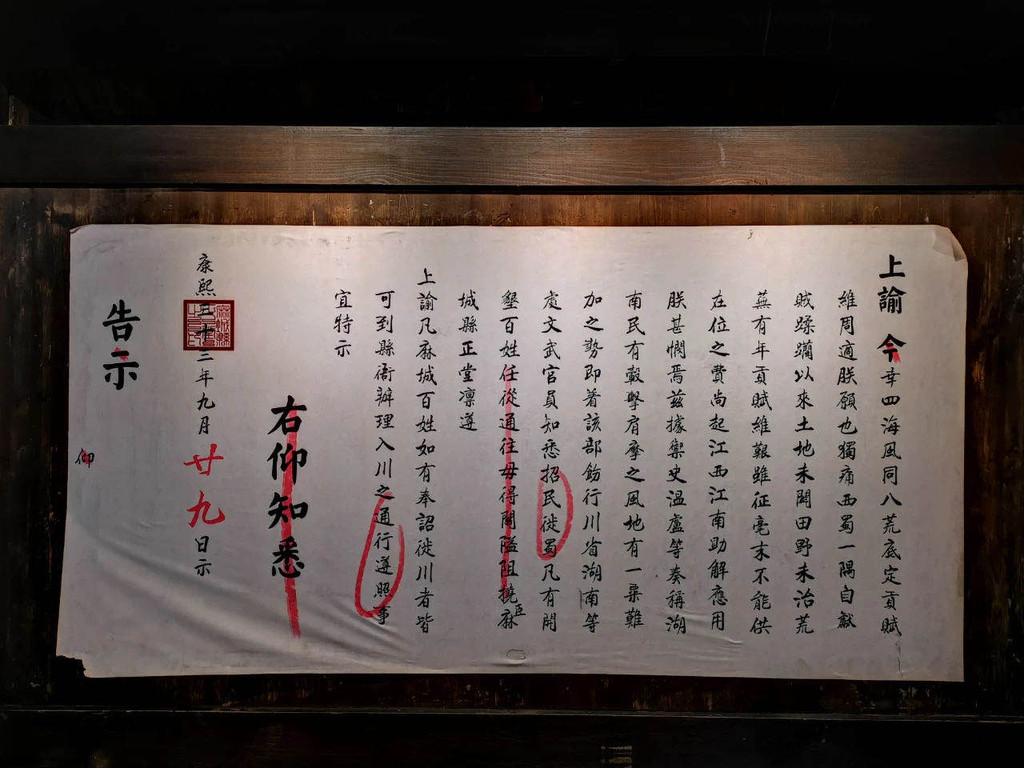 上諭 今幸四海風同八荒底定貢賦
維周適朕願也獨痛西蜀一隅自獻
賊蹂躪以來土地未闢田野未治荒
蕪有年貢賦維艱雖征毫末不能供
在位之費尚起江西江南助解應用
朕甚憫焉茲據禦史温盧等奏稱湖
南民有轂擊肩摩之風地有一粟難
加之勢即著該部飭行川省湖南等
處文武官員知悉招民徙蜀凡有開
墾百姓任從通往毋得關隘阻撓麻
臣
城縣正堂凛遵
上諭凡麻城百姓如有奉詔徙川者皆
可到縣衙辦理入川之通行遵照事
宜特示
右仰知悉
康熙三十三年九月廿九日示
告示
仰